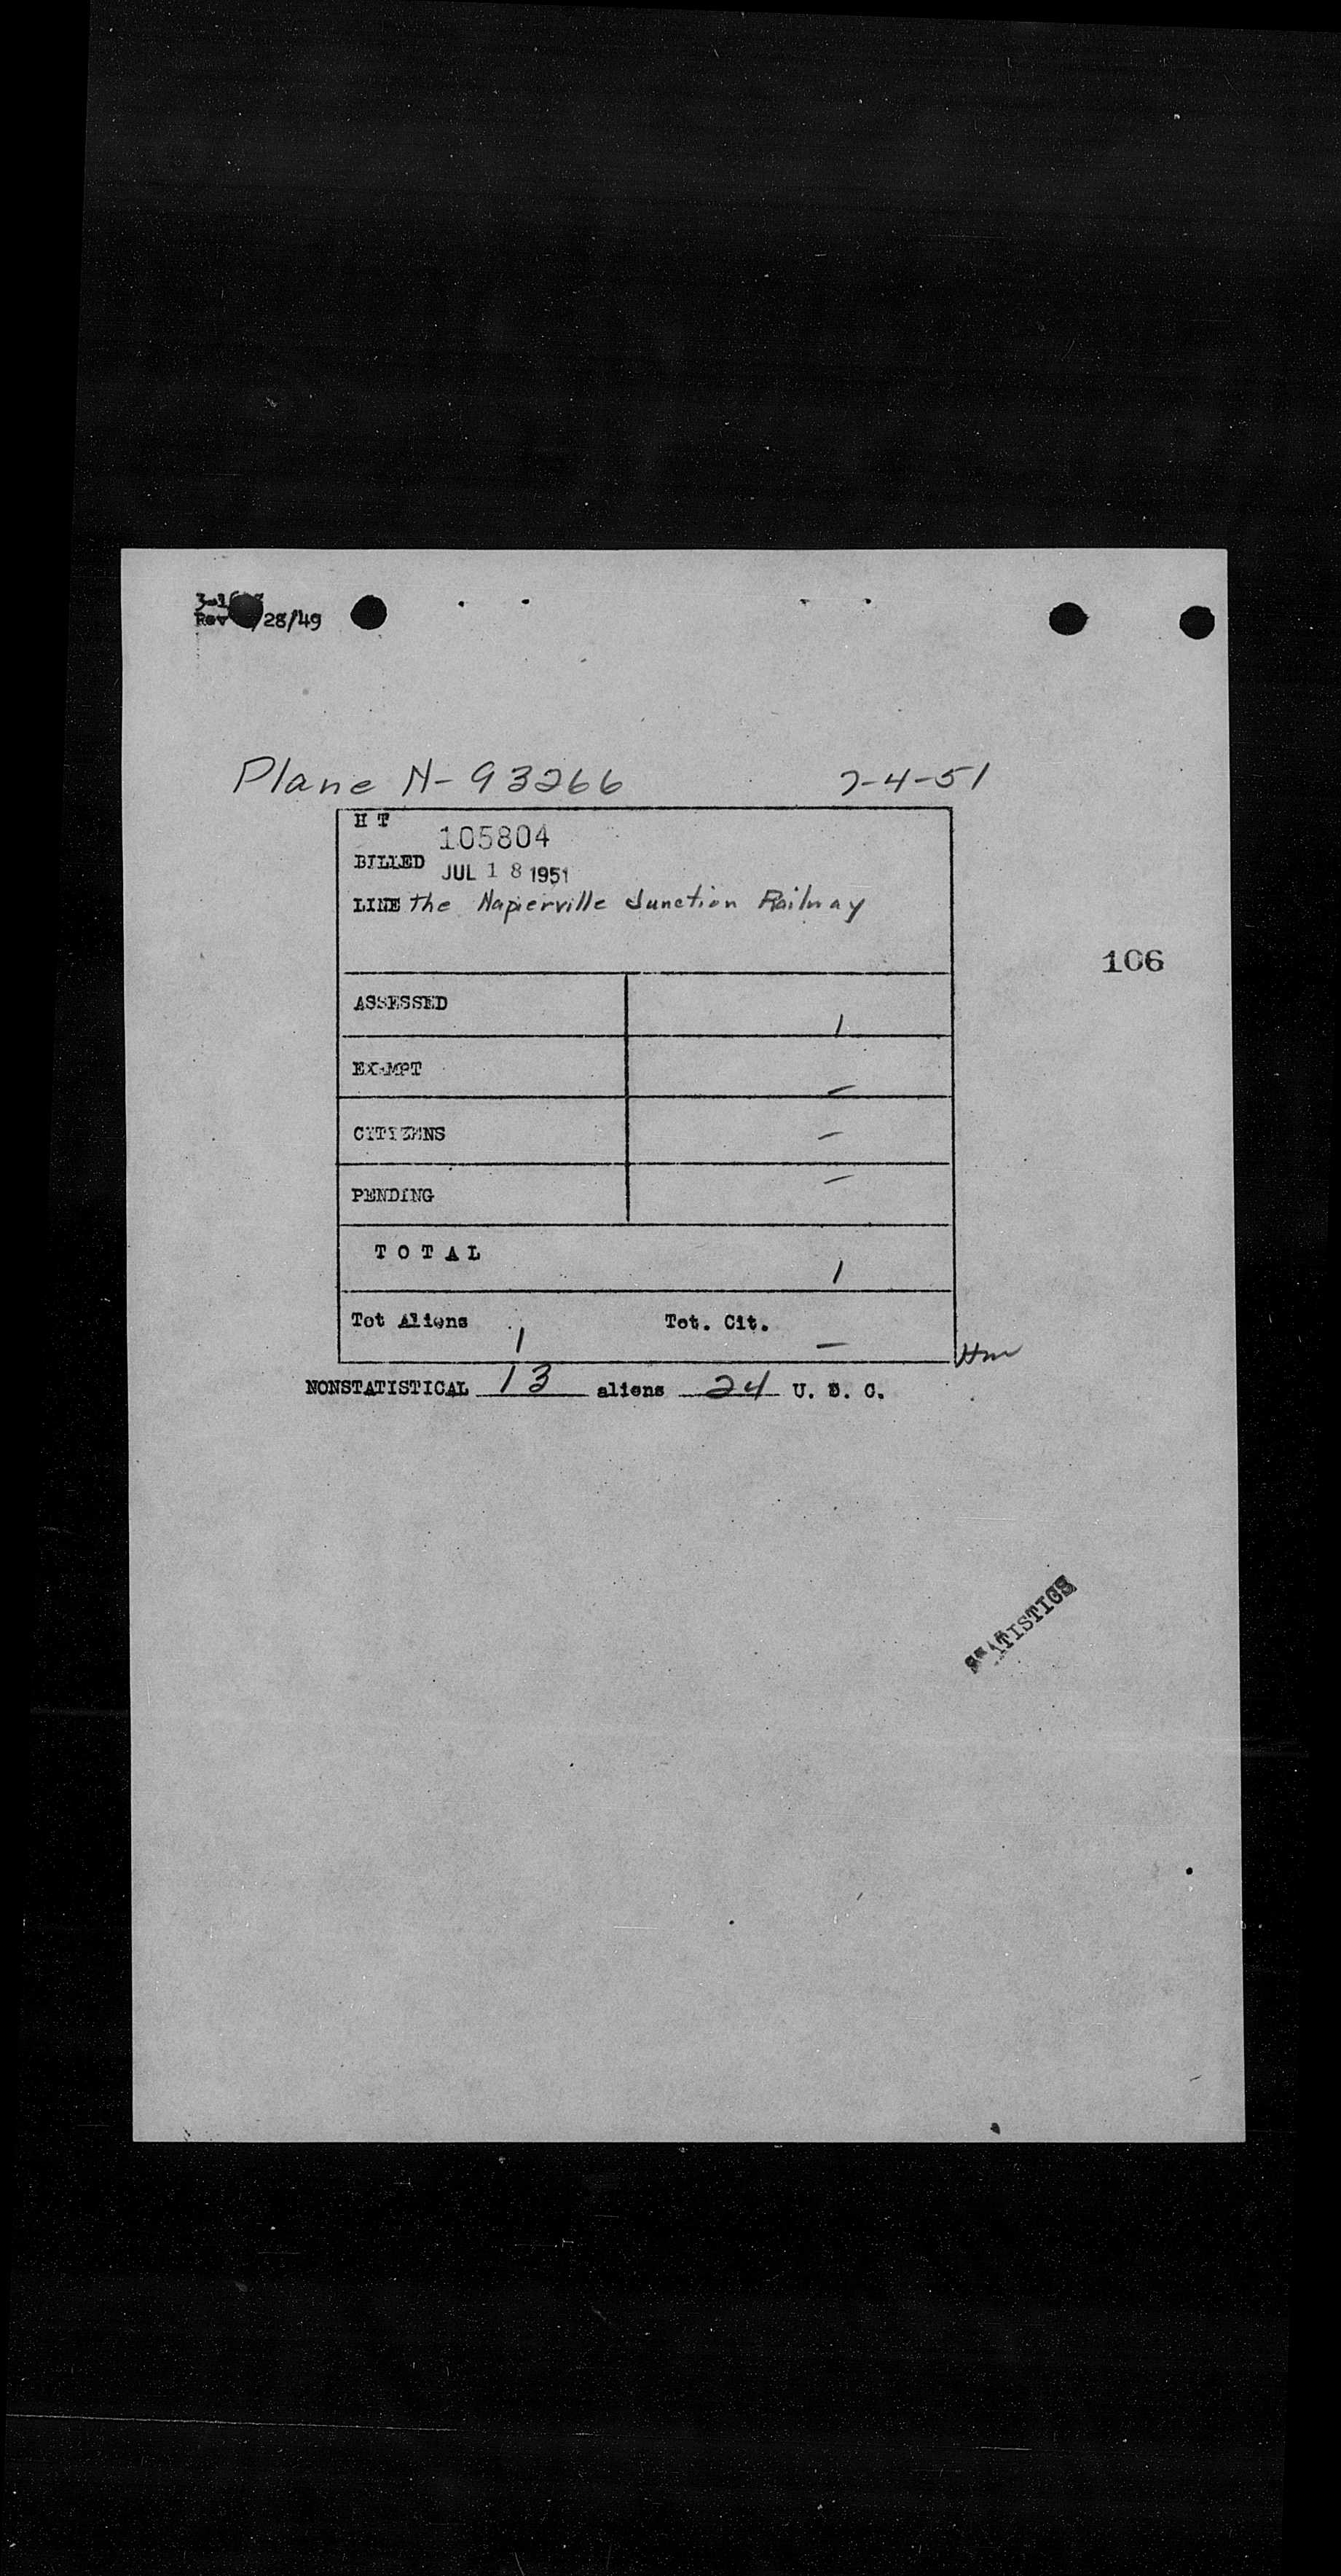 Rev /28/49
Plane N-93266 7-4-51
H T
105804
BILLED JUL 18 1951
LINE the Napierville Junction Railway
106
ASSESSED 1
EXEMPT –
CITIZENS –
PENDING –
T O T A L 1
Tot Aliens 1 Tot. Cit. –
NONSTATISTICAL 13 aliens 24 U. S. C.
STATISTICS